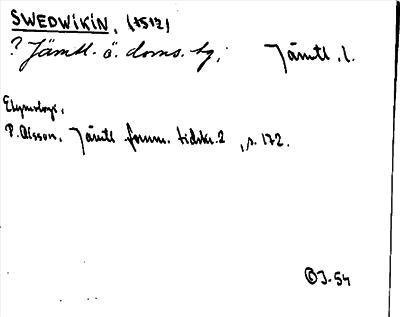 SWEDWIKIN, (1512)
? Jämtl. ö. doms. tg; Jämtl. l.
Etymologi,
P. Olsson, Jämtl forn. tidskr. 2, s. 172.
© J-54